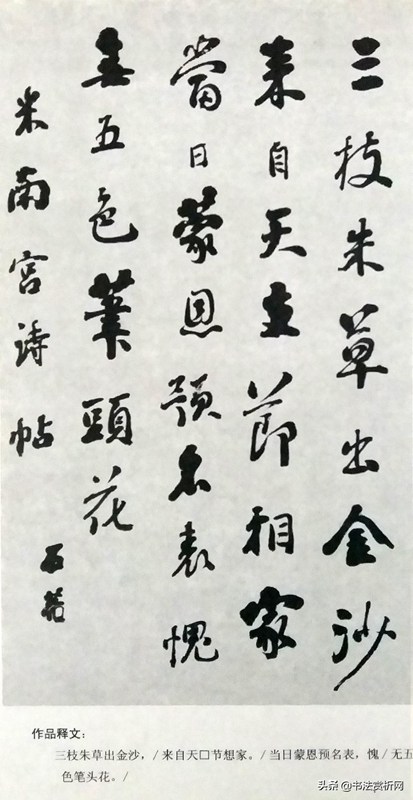 三枝朱草出金沙
来自天支節相家
當日蒙恩預名表愧
無五色筆頭花
米南宮詩帖
石菴
作品释文：
三枝朱草出金沙，/来自天□节想家。/当日蒙恩预名表，愧/无五
色笔头花。/
头条 @书法赏析网